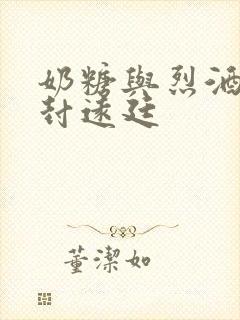 奶糖與烈酒
封遠廷
董潔如